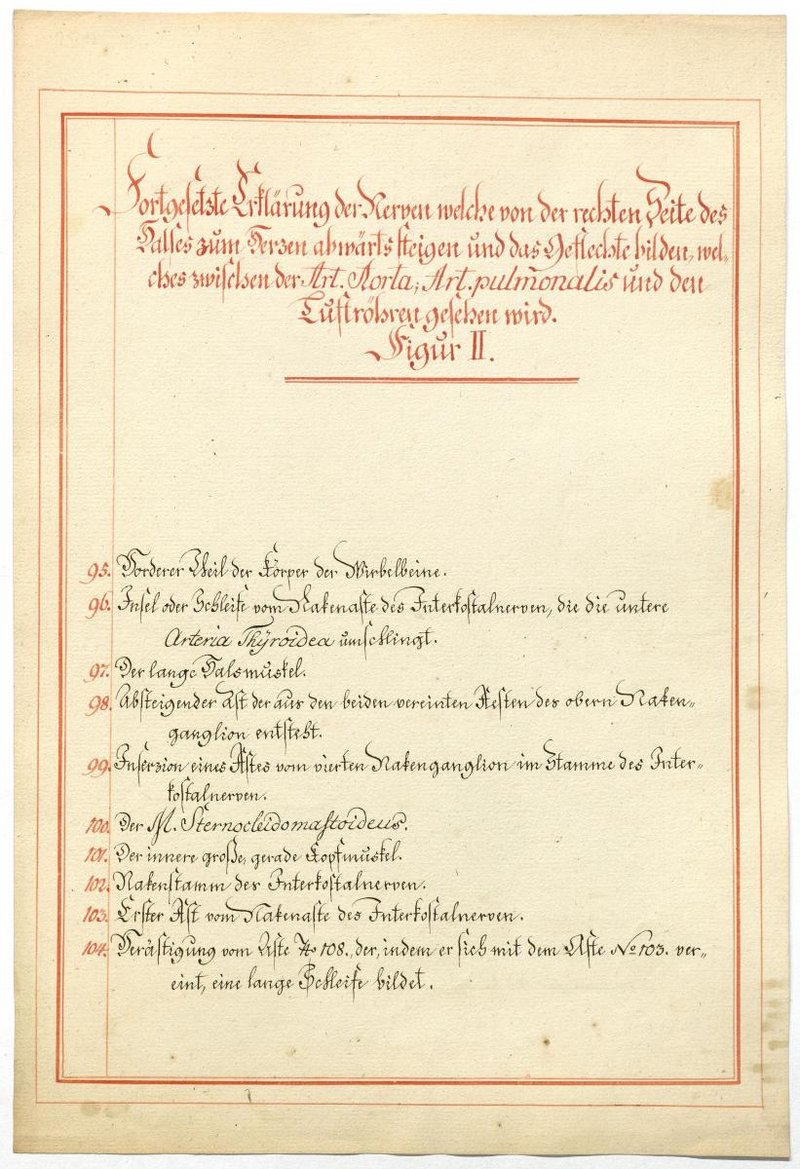 Fortgesetzte Erklärung der Nerven welche von der rechten Seite des
Halses zum Herzen abwärts steigen und das Geflechte bilden, wel-
ches zwischen der Art. Aorta, Art. pulmonalis und den
Luftröhren gesehen wird.
Figur II.
95. Vorderer Theil der Körper der Wirbelbeine.
96. Insel oder Schleife vom Nakenaste des Interkostalnerven, die die untere
Arteria Thÿroidea umschlingt.
97. Der lange Halsmuskel.
98. Absteigender Ast der aus den beiden vereinten Aesten des obern Naken-
ganglion entsteht.
99. Inserzion eines Astes vom vierten Nakenganglion im Stamme des Inter-
kostalnerven.
100. Der M. Sternocleidomastoideus.
101. Der innere große, gerade Kopfmuskel.
102. Nakenstamm des Interkostalnerven.
103. Erster Ast vom Nakenaste des Interkostalnerven.
104. Verästigung vom Aste No 108., der, indem er sich mit dem Aste No 103. ver-
eint, eine lange Schleife bildet.